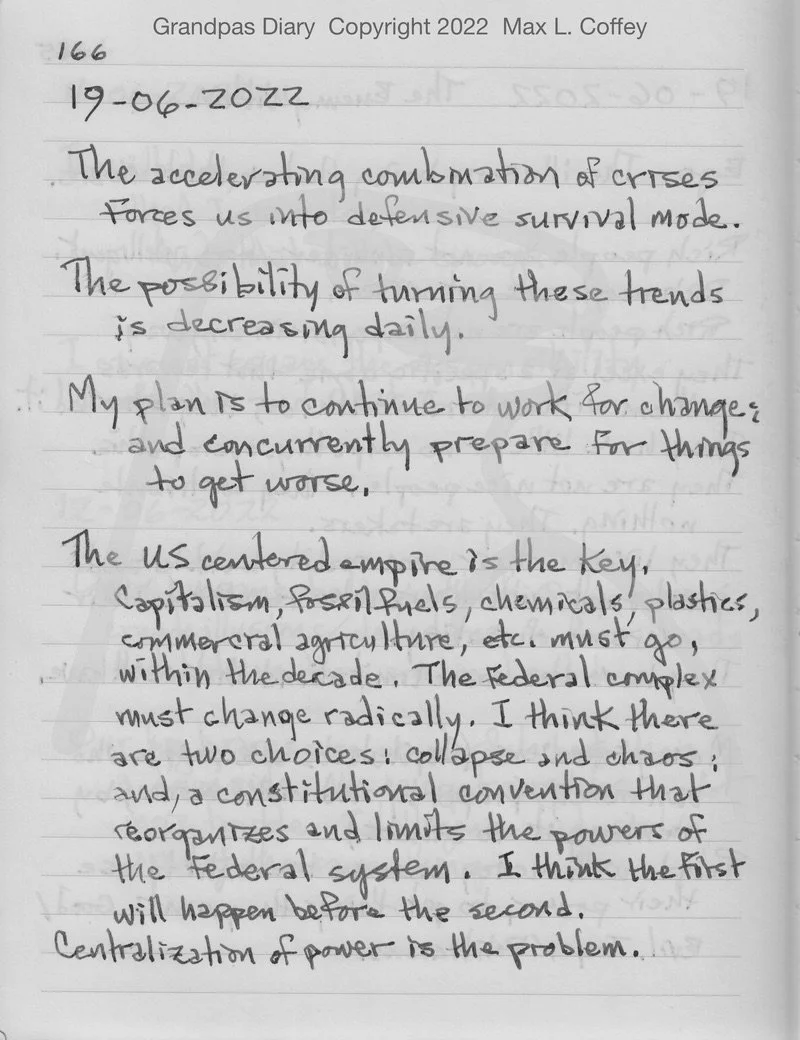 Grandpas Diary Copyright 2022 Max L. Coffey
166
19-06-2022
The accelerating combination of crises
forces us into defensive survival mode.
The possibility of turning these trends
is decreasing daily.
My plan is to continue to work for change;
and concurrently prepare for things
to get worse.
The US centered empire is the key.
Capitalism, fossil fuels, chemicals, plastics,
commercial agriculture, etc. must go,
within the decade. The Federal complex
must change radically. I think there
are two choices: collapse and chaos;
and, a constitutional convention that
reorganizes and limits the powers of
the Federal system. I think the first
will happen before the second.
Centralization of power is the problem.